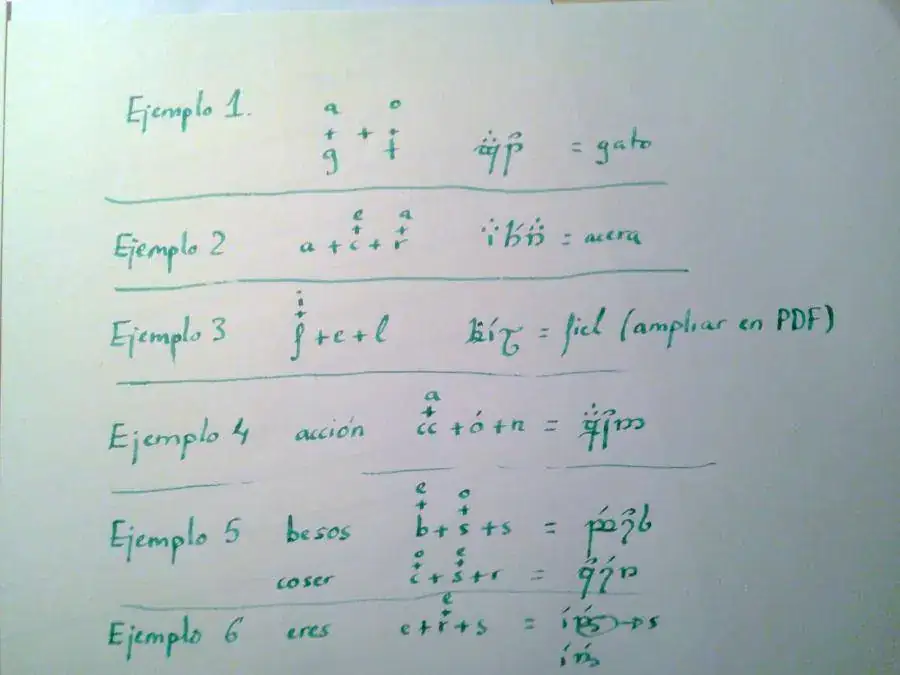 Ejemplo 1.
a o
+ + +
g t = gato
Ejemplo 2
e a
+ +
a + c + r = acera
Ejemplo 3
i
+
f + e + l = fiel (ampliar en PDF)
Ejemplo 4 acción
a
+
cc + ó + n =
Ejemplo 5 besos
e o
+ +
b + s + s =
coser
o e
+ +
c + s + r =
Ejemplo 6 eres
e
+
e + r + s =